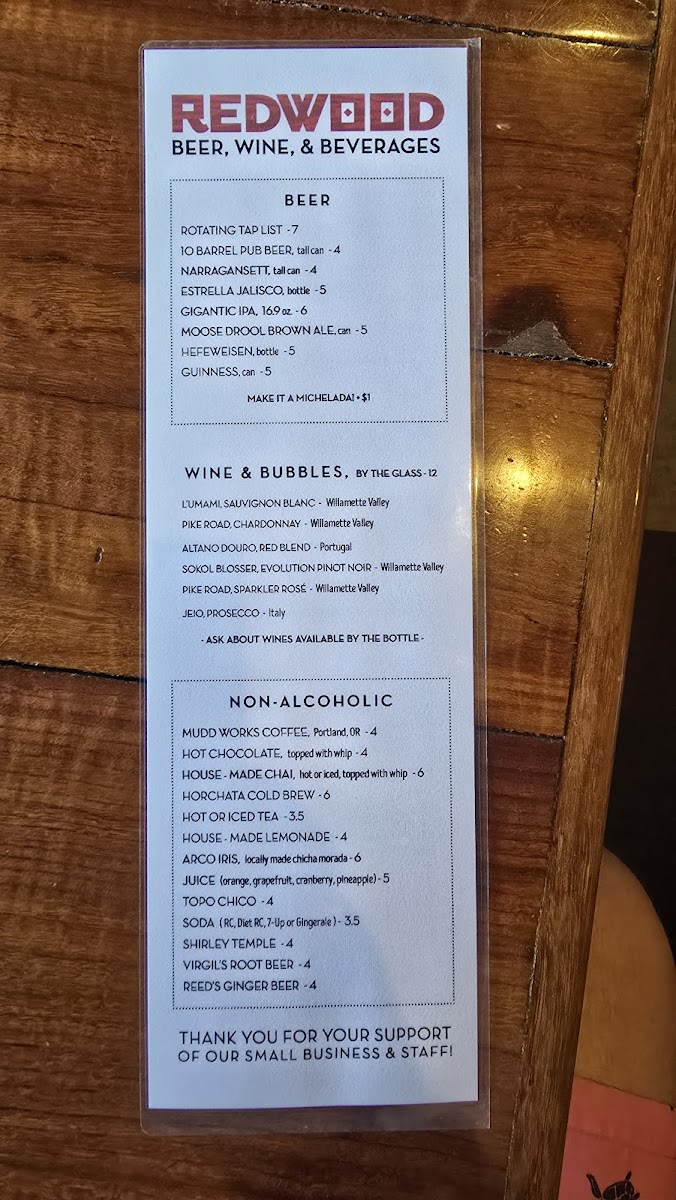 REDWOOD
BEER, WINE, & BEVERAGES
BEER
ROTATING TAP LIST - 7
10 BARREL PUB BEER, tall can - 4
NARRAGANSETT, tall can - 4
ESTRELLA JALISCO, bottle - 5
GIGANTIC IPA, 16.9 oz. - 6
MOOSE DROOL BROWN ALE, can - 5
HEFEWEISEN, bottle - 5
GUINNESS, can - 5
MAKE IT A MICHELADA! + $1
WINE & BUBBLES, BY THE GLASS - 12
L'UMAMI, SAUVIGNON BLANC - Willamette Valley
PIKE ROAD, CHARDONNAY - Willamette Valley
ALTANO DOURO, RED BLEND - Portugal
SOKOL BLOSSER, EVOLUTION PINOT NOIR - Willamette Valley
PIKE ROAD, SPARKLER ROSÉ - Willamette Valley
JEIO, PROSECCO - Italy
- ASK ABOUT WINES AVAILABLE BY THE BOTTLE -
NON-ALCOHOLIC
MUDD WORKS COFFEE, Portland, OR - 4
HOT CHOCOLATE, topped with whip - 4
HOUSE - MADE CHAI, hot or iced, topped with whip - 6
HORCHATA COLD BREW - 6
HOT OR ICED TEA - 3.5
HOUSE - MADE LEMONADE - 4
ARCO IRIS, locally made chicha morada - 6
JUICE (orange, grapefruit, cranberry, pineapple) - 5
TOPO CHICO - 4
SODA ( RC, Diet RC, 7-Up or Gingerale ) - 3.5
SHIRLEY TEMPLE - 4
VIRGIL'S ROOT BEER - 4
REED'S GINGER BEER - 4
THANK YOU FOR YOUR SUPPORT
OF OUR SMALL BUSINESS & STAFF!